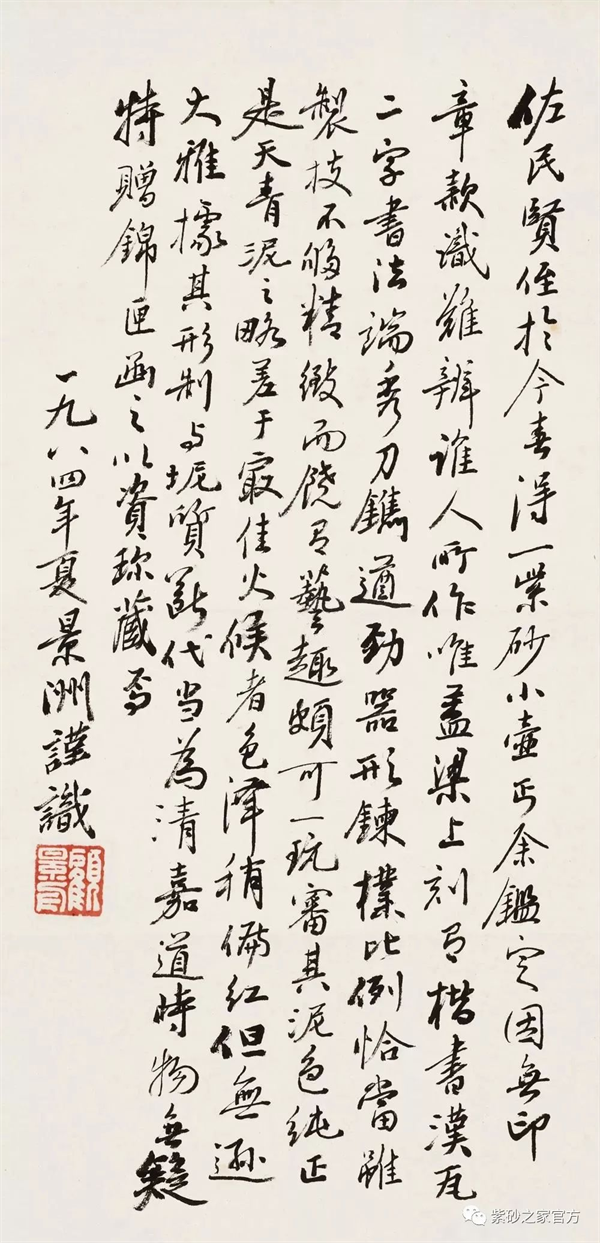 佐民賢侄於今春得一紫砂小壺丐余鑑定因無印
章款識難辨誰人所作唯蓋梁上刻有楷書漢瓦
二字書法端秀刀鐫遒勁器形鍊樸比例恰當雖
製技不够精緻而饒有藝趣頗可一玩審其泥色純正
是天青泥之略差于最佳火候者色澤稍偏红但無遜
大雅據其形制与坭質断代当為清嘉道時物無疑
特贈錦匣函之以資珍藏焉
一九八四年夏景洲謹識
顧景舟
紫砂之家官方